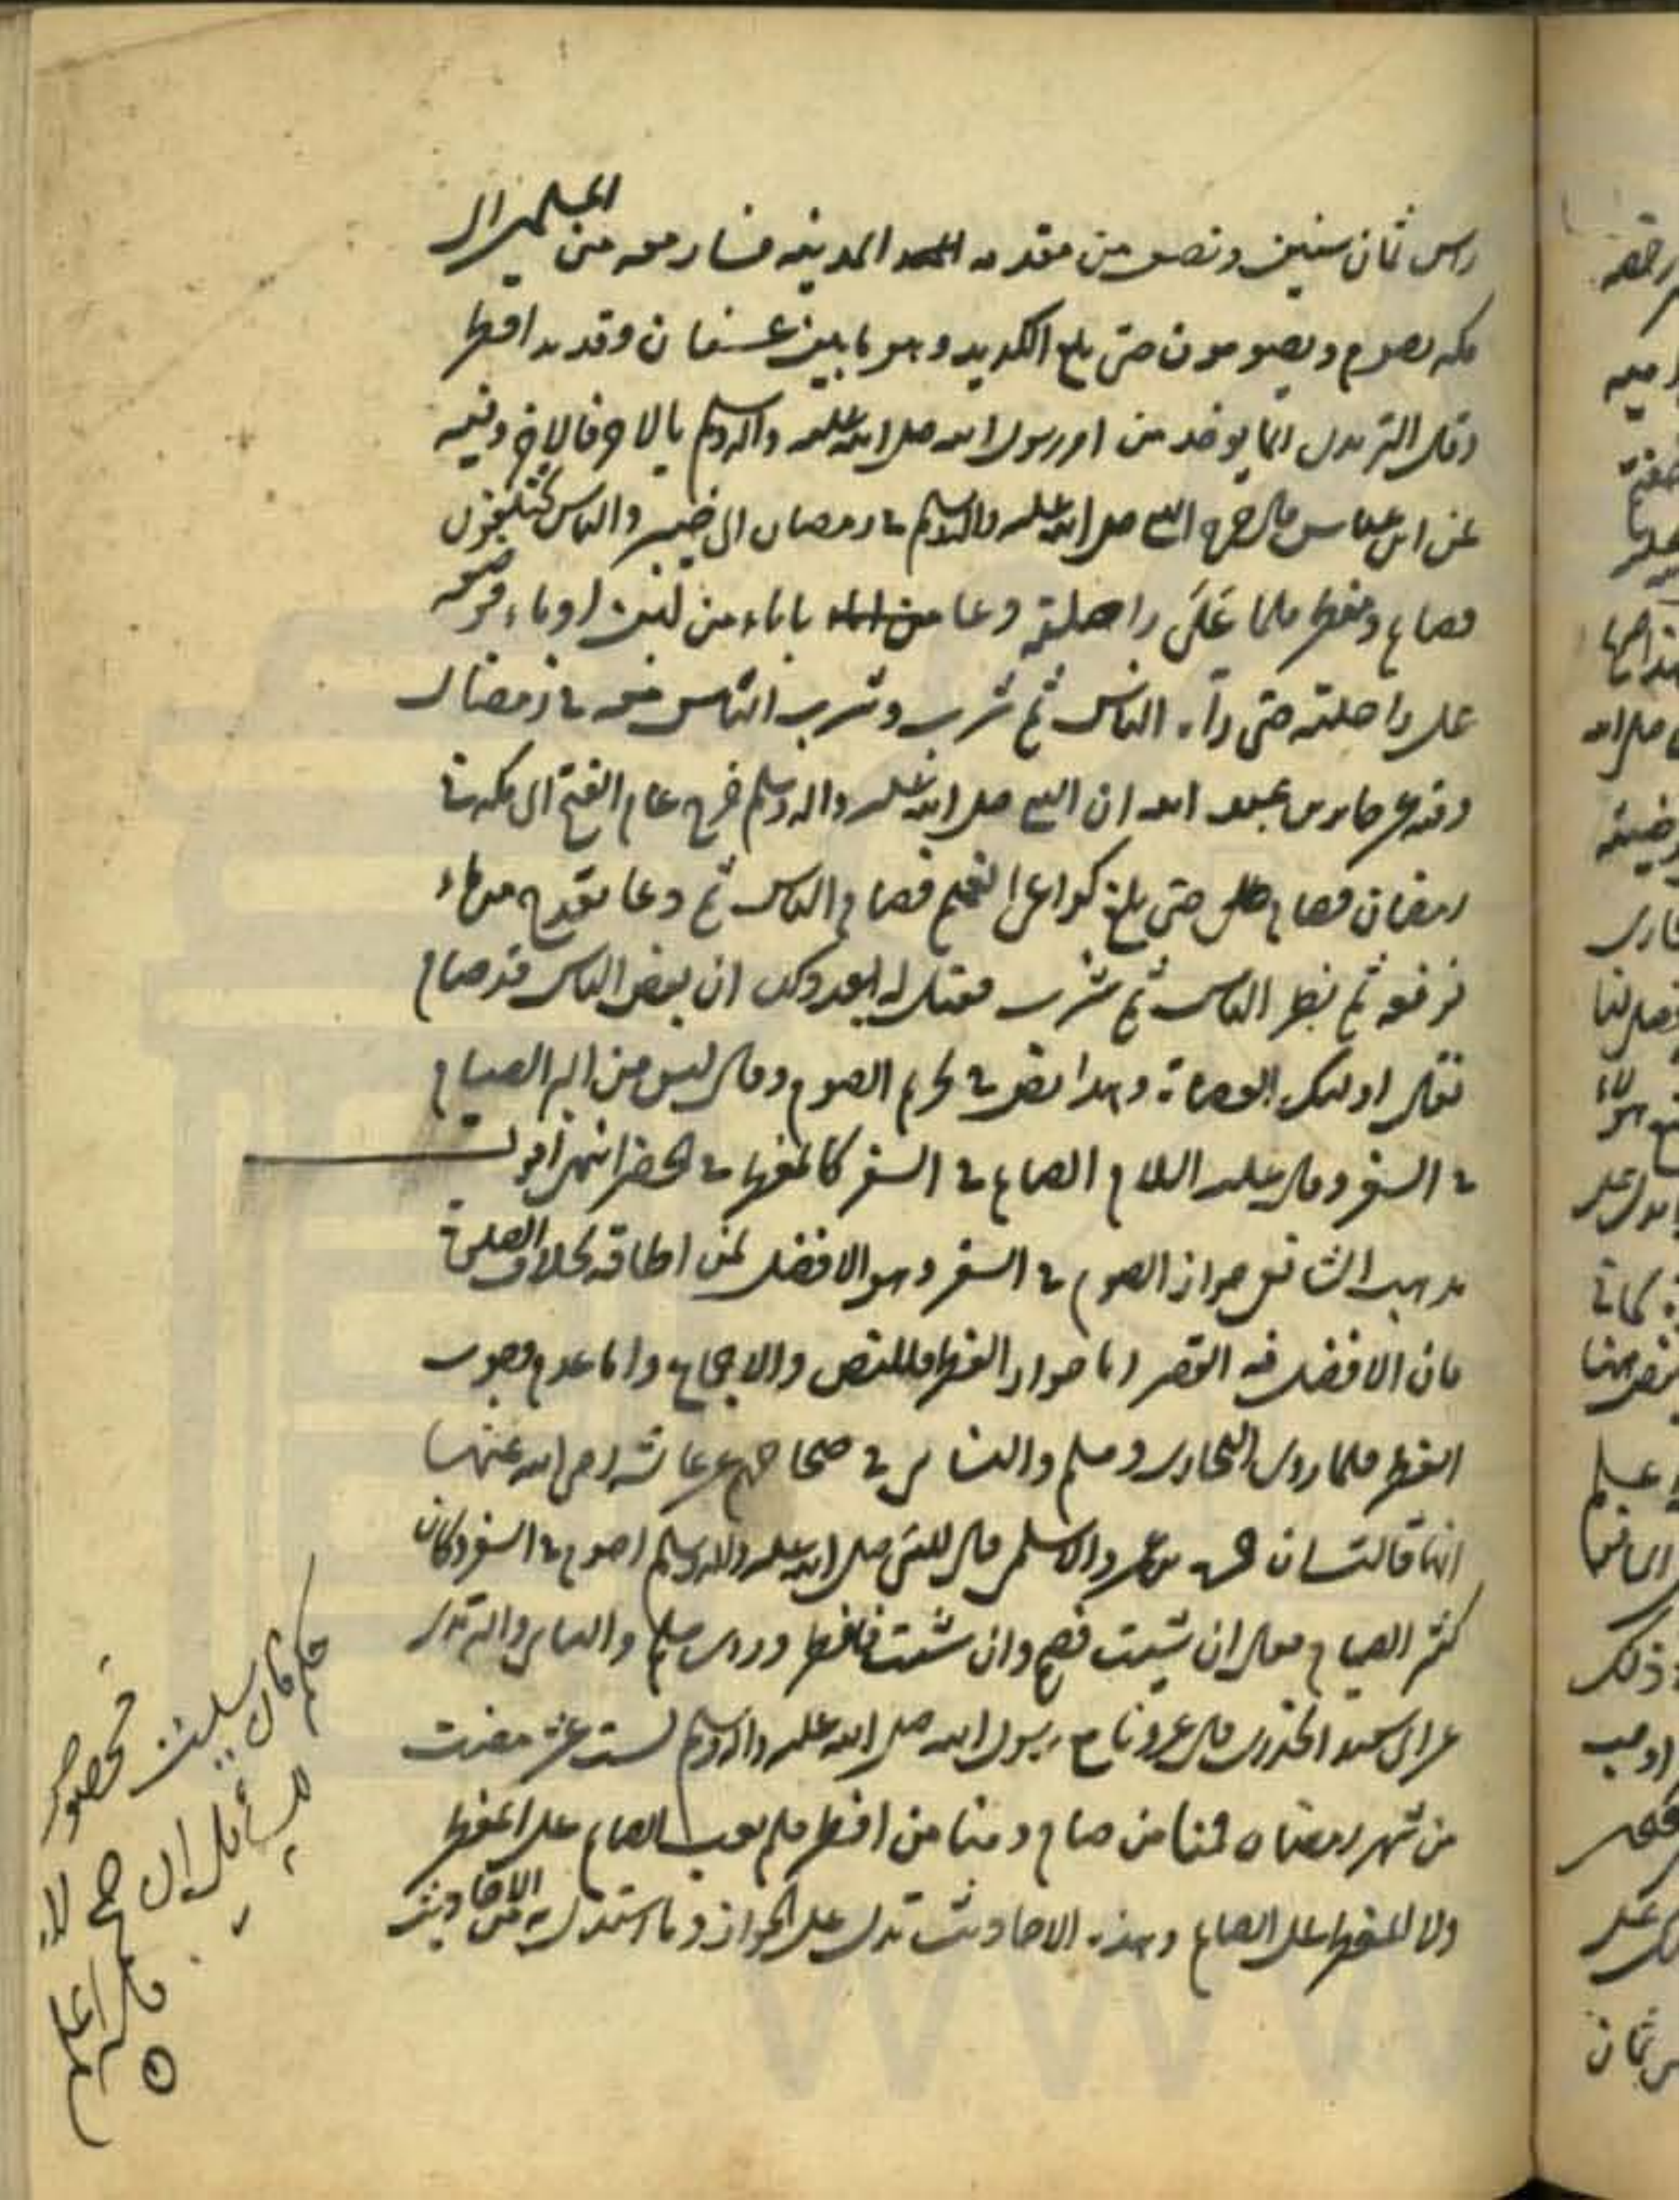 راس ثمان سنين ونصف من مقدمه المدينه فسار معه من المسلمين الى
مكه يصوم ويصومون حتى بلغ الكديد وهو ما بين عسفان وقديد افطر
وقال الترمدى انما يوخذ من امر رسول الله صلى الله عليه واله وسلم بالاخر فالاخر وفيه
عن ابن عباس قال خرج النبي صلى الله عليه واله وسلم في رمضان الى حنين والناس مختلفون
فصايم ومفطر فلما على راحلته دعا باناء من لبن او ماء فوضعه
على راحلته حتى راه الناس ثم شرب وشرب الناس معه في رمضان
وفيه عن جابر بن عبد الله ان النبي صلى الله عليه واله وسلم خرج عام الفتح الى مكه في
رمضان فصام حتى بلغ كراع الغميم فصام الناس ثم دعا بقدح من ماء
فرفعه ثم نظر الناس ثم شرب فقيل له بعد ذلك ان بعض الناس قد صام
فقال اولئك العصاة وهذا نص في تحريم الصوم وقال ليس من البر الصيام
في السفر وقال عليه السلام الصايم في السفر كالمفطر في الحضر انتهى اقول
مذهب الشافعى جواز الصوم في السفر وهو الافضل لمن اطاقه بخلاف الصلوة
فان الافضل فيه القصر اما جواز الفطر فللنص والاجماع واما عدم وجوب
الفطر فلما روى البخارى ومسلم والنسائى في صحاحهم عن عائشه رضى الله عنها
انها قالت ان حمزه بن عمرو الاسلمى قال للنبى صلى الله عليه واله وسلم اصوم في السفر وكان
كثير الصيام فقال ان شيت فصم وان شئت فافطر وروى مسلم والنسائى والترمدى
عن ابى سعيد الخدرى قال غزونا مع رسول الله صلى الله عليه واله وسلم لست عشره مضت
من شهر رمضان فمنا من صام ومنا من افطر فلم يعب الصايم على المفطر
ولا المفطر على الصايم وهذه الاحاديث تدل على الجواز وما استدل به من الاحاديث